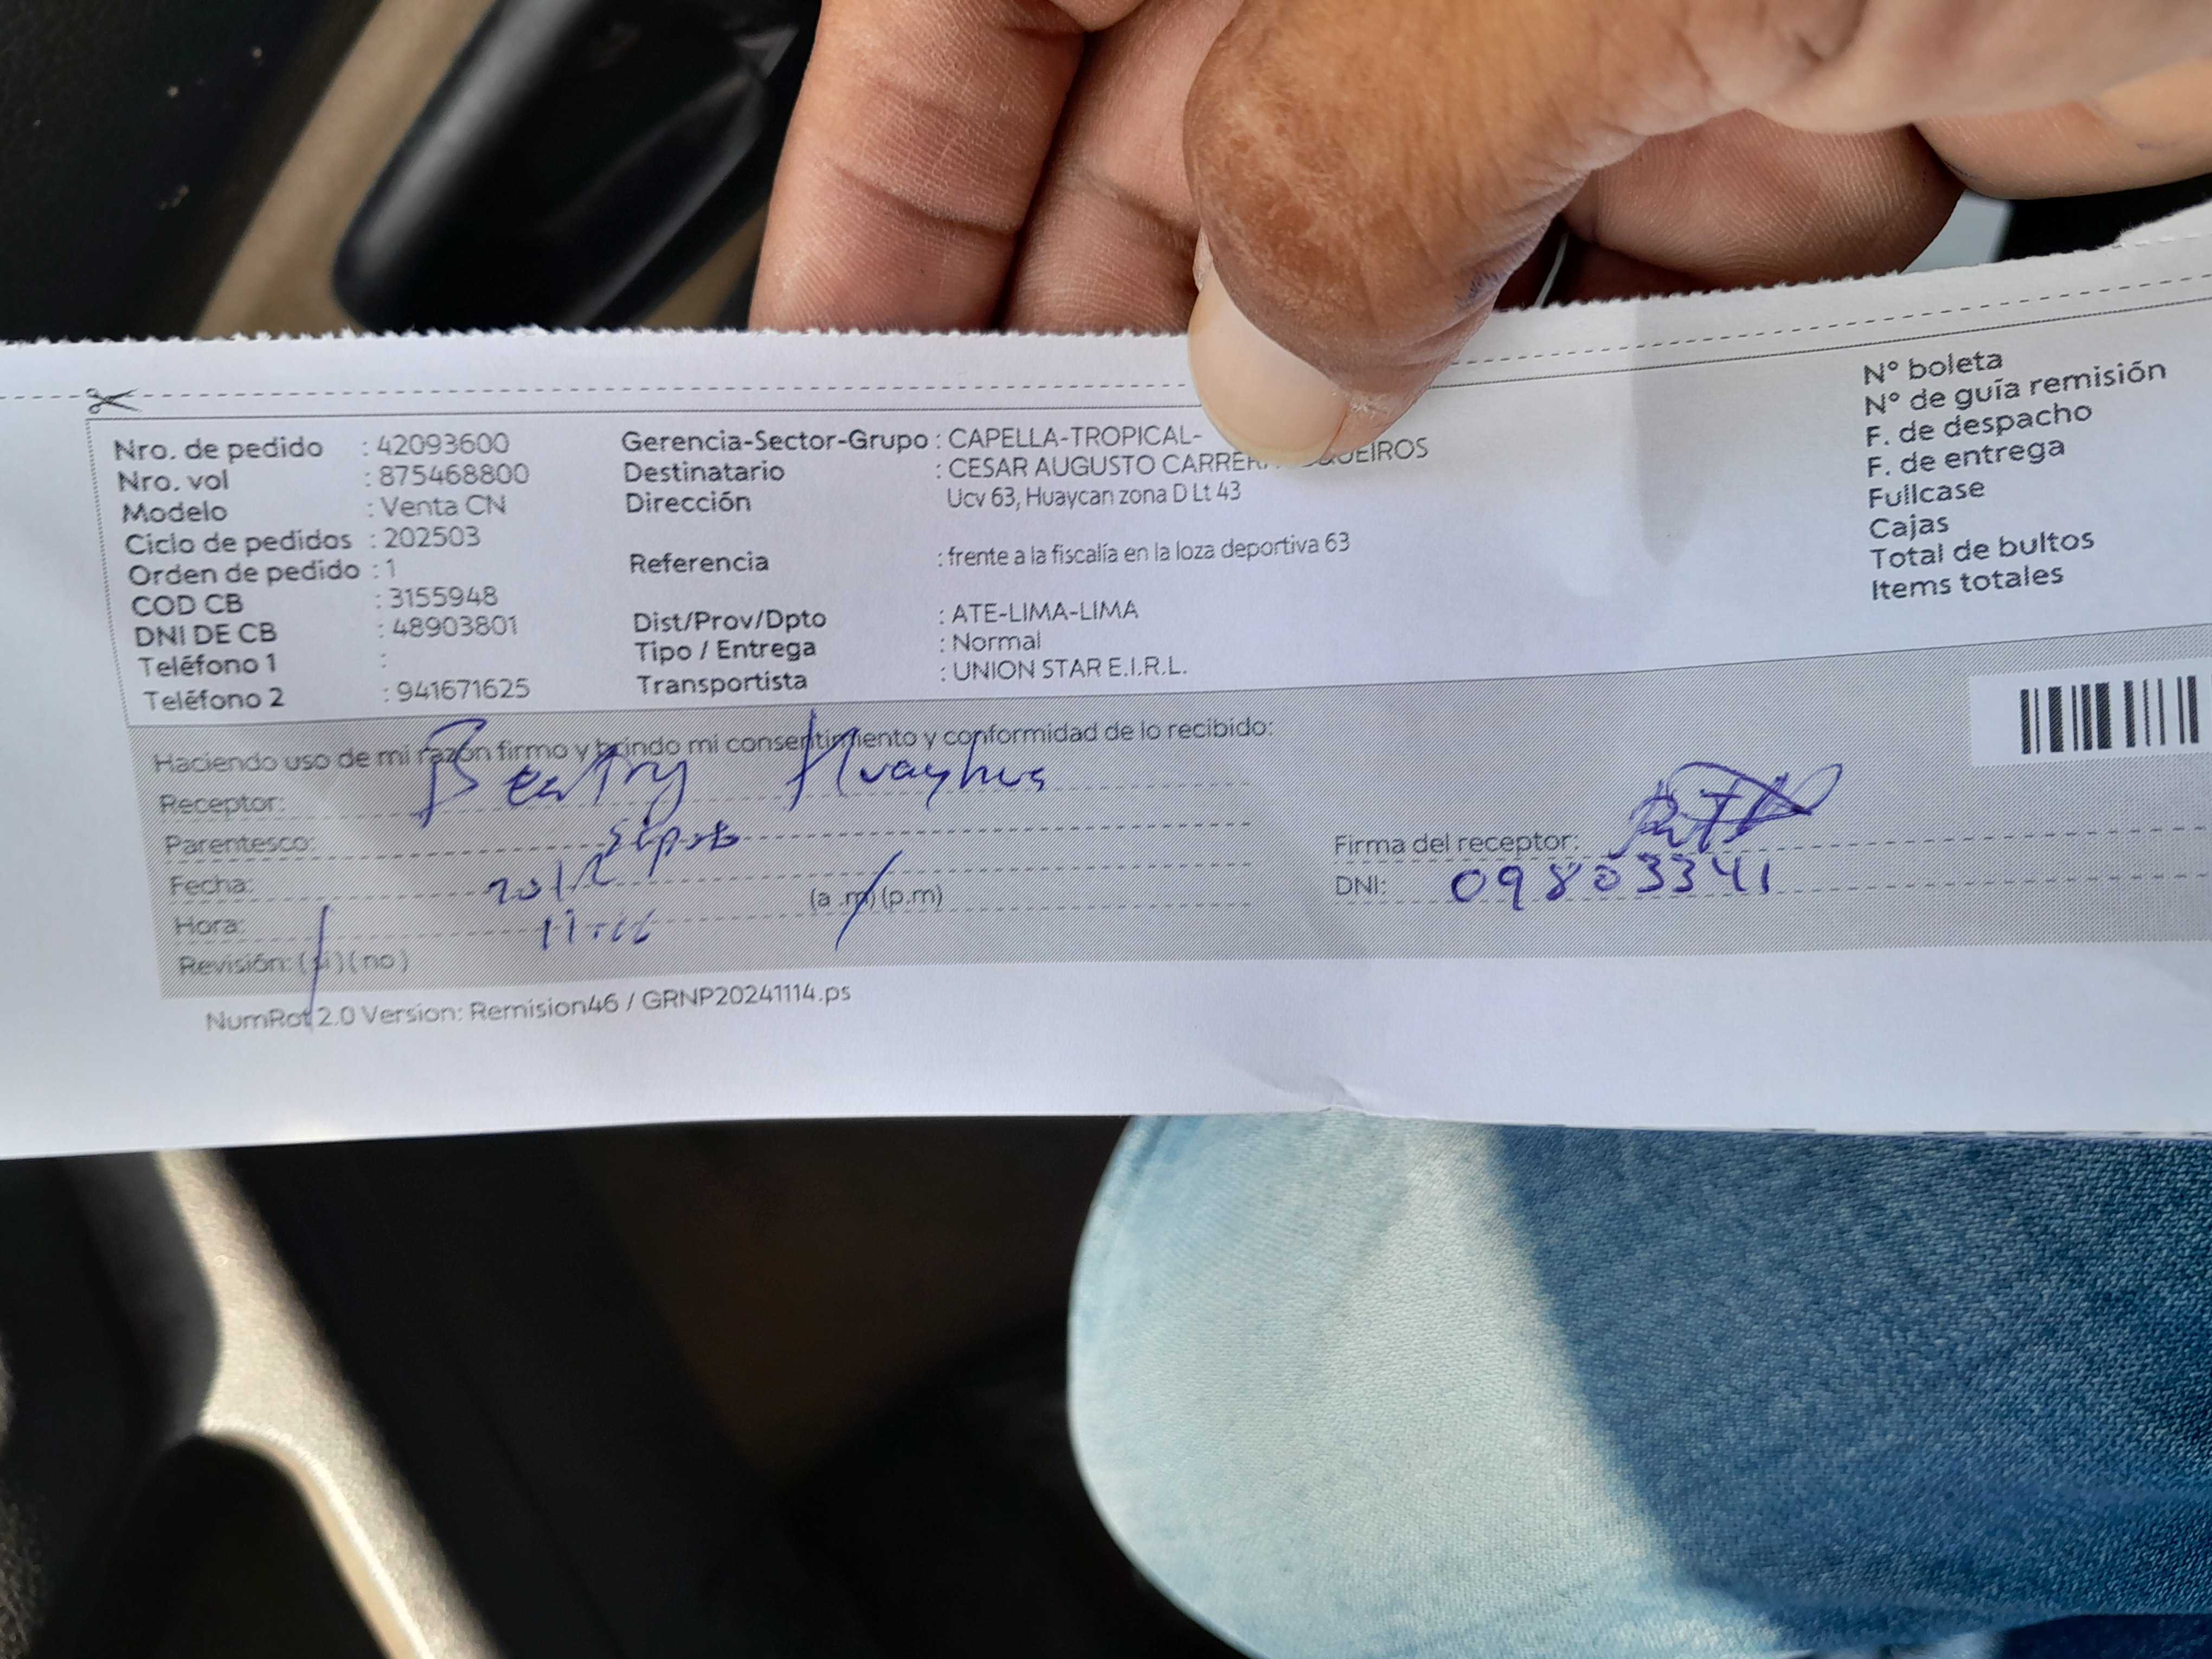 Nro. de pedido : 42093600
Nro. vol : 875468800
Modelo : Venta CN
Ciclo de pedidos : 202503
Orden de pedido : 1
COD CB : 3155948
DNI DE CB : 48903801
Teléfono 1 :
Teléfono 2 : 941671625
Gerencia-Sector-Grupo : CAPELLA-TROPICAL-
Destinatario : CESAR AUGUSTO
Dirección Ucv 63, Huaycan zona D Lt 43
Referencia : frente a la fiscalía en la loza deportiva 63
Dist/Prov/Dpto : ATE-LIMA-LIMA
Tipo / Entrega : Normal
Transportista : UNION STAR E.I.R.L.
N° boleta
N° de guía remisión
F. de despacho
F. de entrega
Fullcase
Cajas
Total de bultos
Items totales
Haciendo uso de mi razón firmo y brindo mi consentimiento y conformidad de lo recibido:
Receptor:
Parentesco:
Fecha:
Hora: (a.m) (p.m)
Revisión: (si) (no)
Firma del receptor:
DNI: 09803341
NumRot 2.0 Version: Remision46 / GRNP20241114.ps